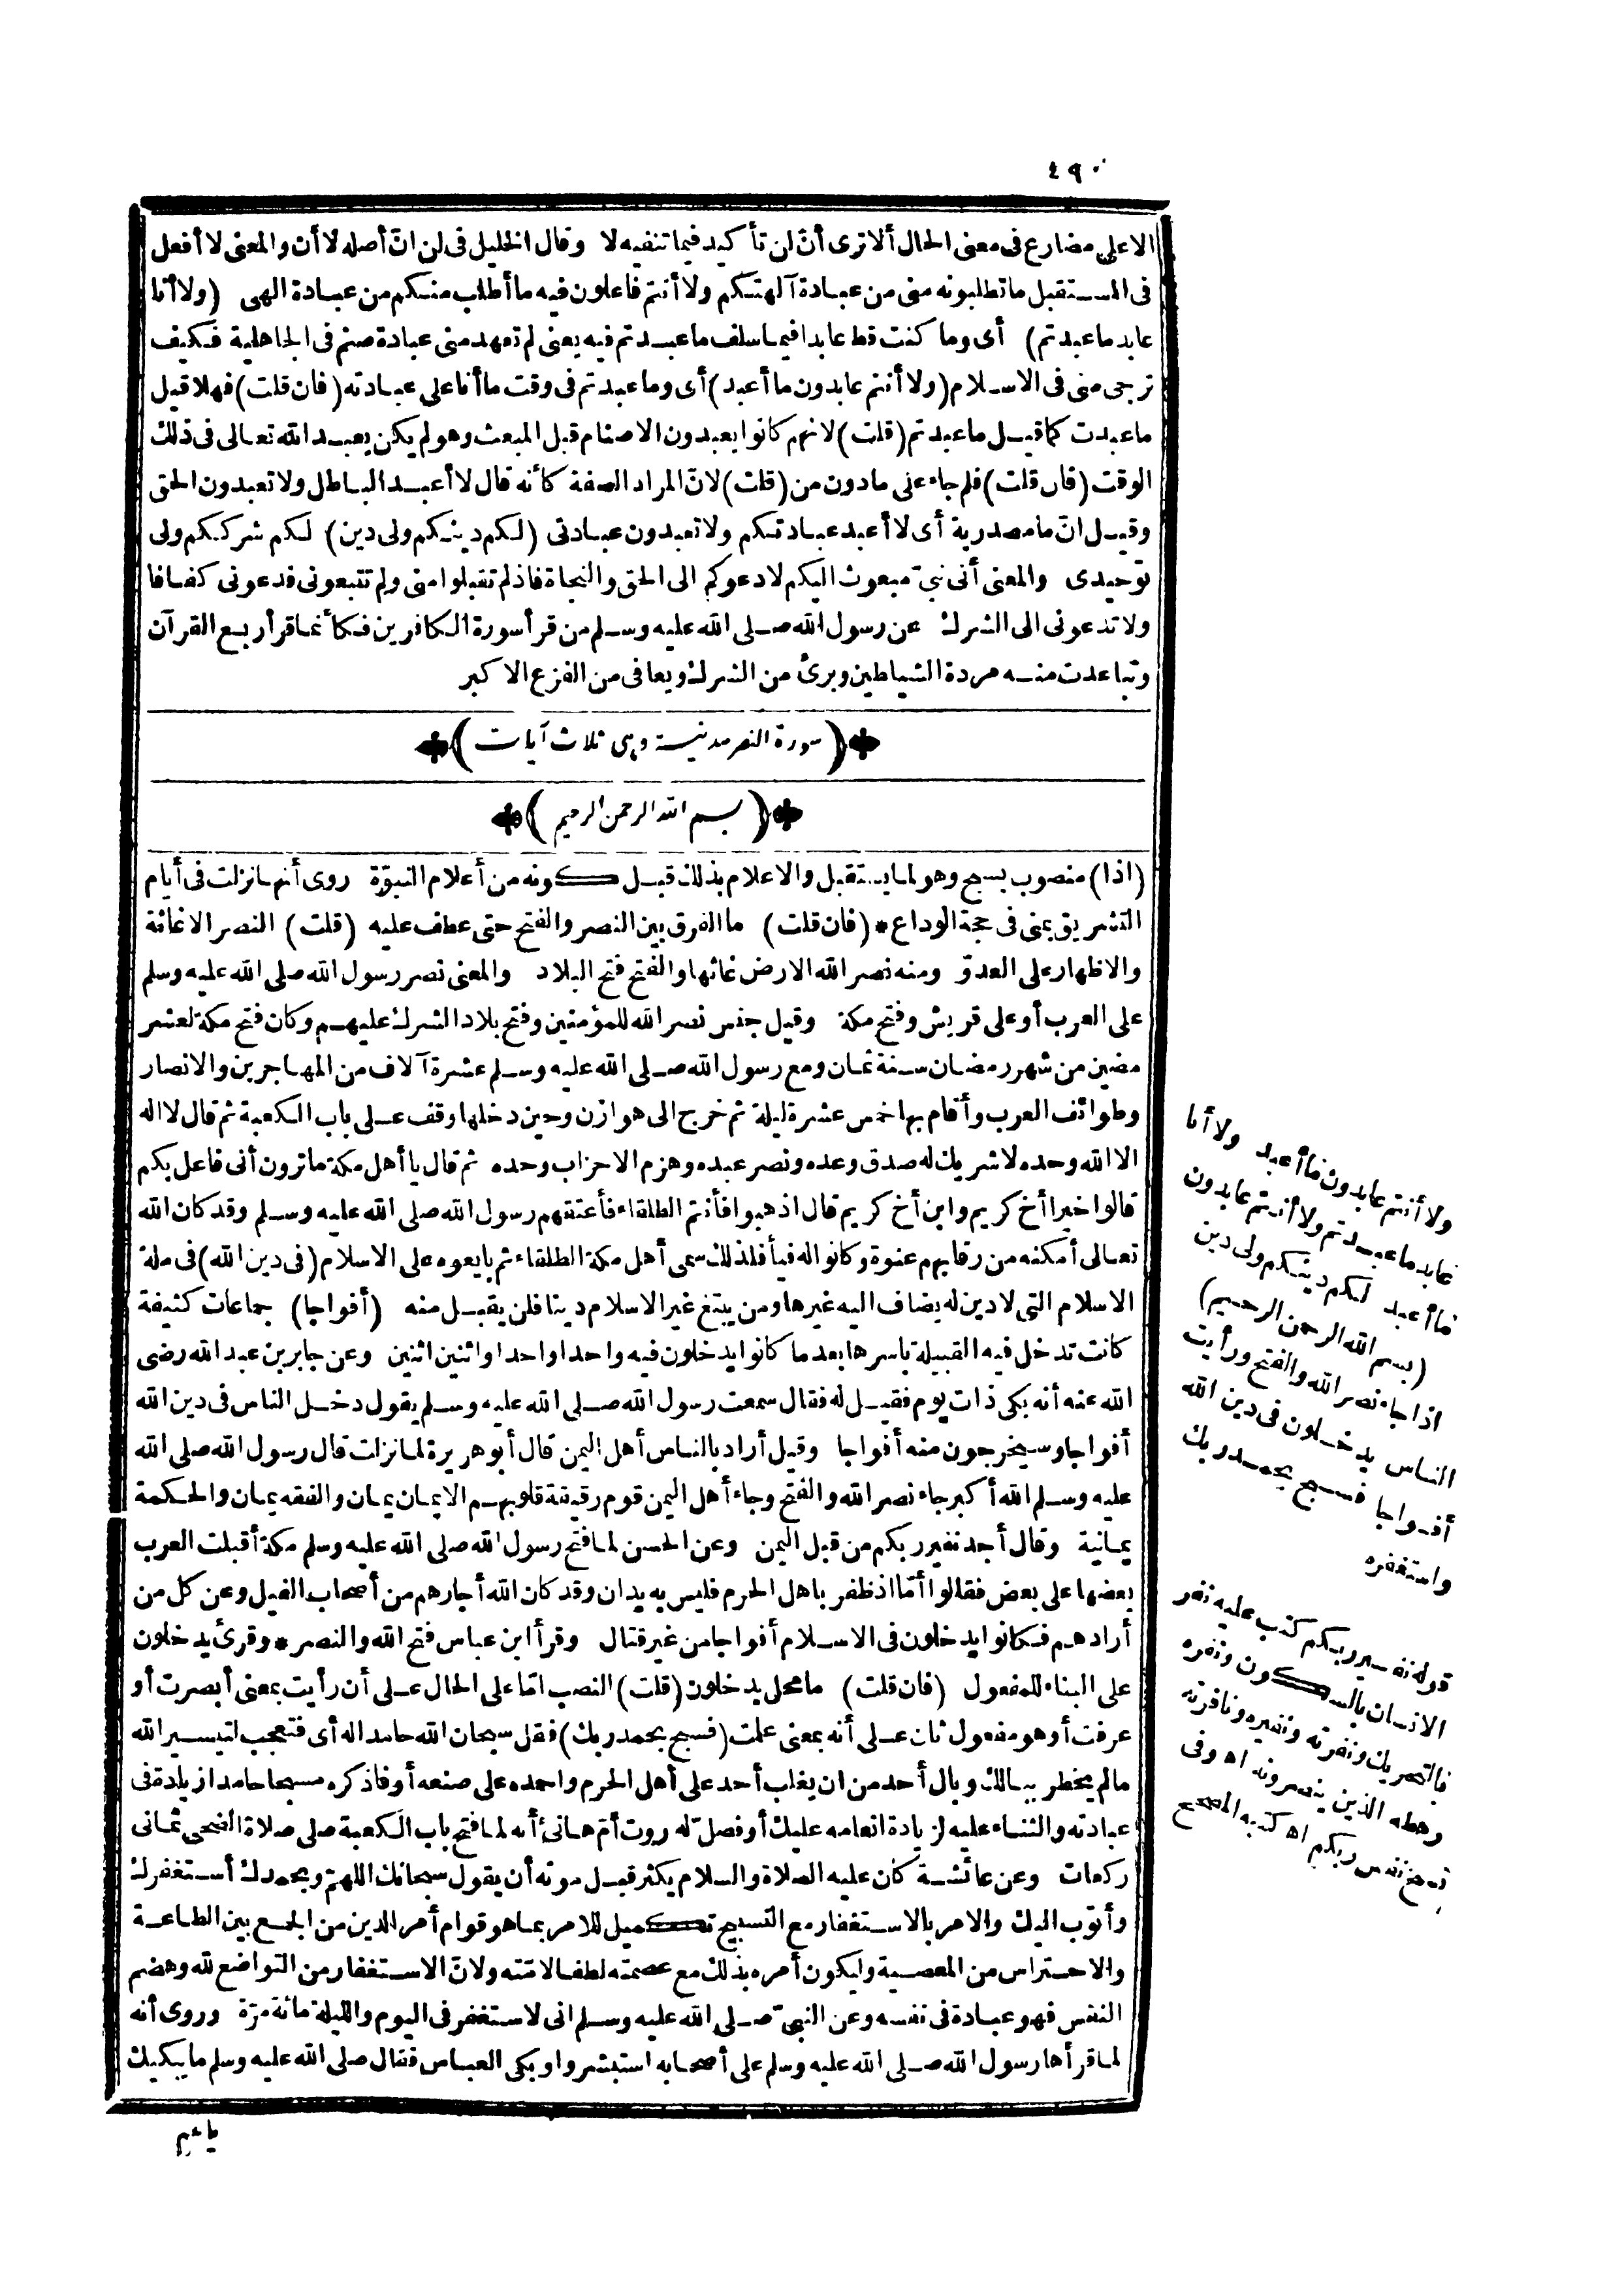 ٤٩٠
الا على مضارع فى معنى الحال ألا ترى أنّ لن تأكيد فيما تنفيه لا وقال الخليل فى لن انّ أصله لا أن والمعنى لا أفعل
فى المستقبل ما تطلبونه منى من عبادة آلهتكم ولا أنتم فاعلون فيه ما أطلب منكم من عبادة الهى (ولا أنا
عابد ما عبدتم) أى وما كنت قط عابدا فيما سلف ما عبدتم فيه يعنى لم تعهد منى عبادة صنم فى الجاهلية فكيف
ترجى منى فى الاسلام (ولا أنتم عابدون ما أعبد) أى وما عبدتم فى وقت ما أنا على عبادته (فان قلت) فهلا قيل
ما عبدت كما قيل ما عبدتم (قلت) لانهم كانوا يعبدون الاصنام قبل المبعث وهو لم يكن يعبد الله تعالى فى ذلك
الوقت (فان قلت) فلم جاء على ما دون من (قلت) لانّ المراد الصفة كأنه قال لا أعبد الباطل ولا تعبدون الحق
وقيل انّ ما مصدرية أى لا أعبد عبادتكم ولا تعبدون عبادتى (لكم دينكم ولى دين) لكم شرككم ولى
توحيدى والمعنى أنى نبىّ مبعوث اليكم لادعوكم الى الحق والنجاة فاذ لم تقبلوا منى ولم تتبعونى فدعونى كفافا
ولا تدعونى الى الشرك عن رسول الله صلى الله عليه وسلم من قرأ سورة الكافرين فكأنما قرأ ربع القرآن
وتباعدت منه مردة الشياطين وبرئ من الشرك ويعافى من الفزع الاكبر
(سورة النصر مدنية وهى ثلاث آيات)
(بسم الله الرحمن الرحيم)
(اذا) منصوب بسبح وهو لما يستقبل والاعلام بذلك قبل كونه من أعلام النبوّة روى أنها نزلت فى أيام
التشريق بمنى فى حجة الوداع * (فان قلت) ما الفرق بين النصر والفتح حتى عطف عليه (قلت) النصر الاغاثة
والاظهار على العدوّ ومنه نصر الله الارض غاثها والفتح فتح البلاد والمعنى نصر رسول الله صلى الله عليه وسلم
على العرب أو على قريش وفتح مكة وقيل جنس نصر الله للمؤمنين وفتح بلاد الشرك عليهم وكان فتح مكة لعشر
مضين من شهر رمضان سنة ثمان ومع رسول الله صلى الله عليه وسلم عشرة آلاف من المهاجرين والانصار
وطوائف العرب وأقام بها خمس عشرة ليلة ثم خرج الى هوازن وحين دخلها وقف على باب الكعبة ثم قال لا اله
الا الله وحده لا شريك له صدق وعده ونصر عبده وهزم الاحزاب وحده ثم قال يا أهل مكة ما ترون أنى فاعل بكم
قالوا خيرا أخ كريم وابن أخ كريم قال اذهبوا فأنتم الطلقاء فأعتقهم رسول الله صلى الله عليه وسلم وقد كان الله
تعالى أمكنه من رقابهم عنوة وكانوا له فيأ فلذلك سمى أهل مكة الطلقاء ثم بايعوه على الاسلام (فى دين الله) فى ملة
الاسلام التى لا دين له يضاف اليه غيرها ومن يبتغ غير الاسلام دينا فلن يقبل منه (أفواجا) جماعات كثيفة
كانت تدخل فيه القبيلة بأسرها بعد ما كانوا يدخلون فيه واحدا واحدا واثنين اثنين وعن جابر بن عبد الله رضى
الله عنه أنه بكى ذات يوم فقيل له فقال سمعت رسول الله صلى الله عليه وسلم يقول دخل الناس فى دين الله
أفواجا وسيخرجون منه أفواجا وقيل أراد بالناس أهل اليمن قال أبو هريرة لما نزلت قال رسول الله صلى الله
عليه وسلم الله أكبر جاء نصر الله والفتح وجاء أهل اليمن قوم رقيقة قلوبهم الايمان يمان والفقه يمان والحكمة
يمانية وقال أجد نفير ربكم من قبل اليمن وعن الحسن لما فتح رسول الله صلى الله عليه وسلم مكة أقبلت العرب
بعضها على بعض فقالوا أمّا اذ ظفر باهل الحرم فليس به يدان وقد كان الله أجارهم من أصحاب الفيل وعن كل من
أرادهم فكانوا يدخلون فى الاسلام أفواجا من غير قتال وقرأ ابن عباس فتح الله والنصر * وقرئ يدخلون
على البناء للمفعول (فان قلت) ما محل يدخلون (قلت) النصب امّا على الحال على أن رأيت بمعنى أبصرت أو
عرفت أو هو مفعول ثان على أنه بمعنى علمت (فسبح بحمد ربك) فقل سبحان الله حامدا له أى فتعجب لتيسير الله
ما لم يخطر ببالك وبال أحد من ان يغلب أحد على أهل الحرم واحمده على صنعه أو فاذكره مسبحا حامدا زيادة فى
عبادته والثناء عليه لزيادة انعامه عليك أو فصلّ له روت أمّ هانئ أنه لما فتح باب الكعبة صلى صلاة الضحى ثمانى
ركعات وعن عائشة كان عليه الصلاة والسلام يكثر قبل موته أن يقول سبحانك اللهمّ وبحمدك أستغفرك
وأتوب اليك والامر بالاستغفار مع التسبيح تكميل للامر بما هو قوام أمر الدين من الجمع بين الطاعة
والاحتراس من المعصية وليكون أمره بذلك مع عصمته لطفا لامّته ولانّ الاستغفار من التواضع لله وهضم
النفس فهو عبادة فى نفسه وعن النبىّ صلى الله عليه وسلم انى لاستغفر فى اليوم والليلة مائة مرّة وروى أنه
لما قرأها رسول الله صلى الله عليه وسلم على أصحابه استبشروا وبكى العباس فقال صلى الله عليه وسلم ما يبكيك
يا عم
ولا أنتم عابدون ما أعبد ولا أنا
عابد ما عبدتم ولا أنتم عابدون
ما أعبد لكم دينكم ولى دين
(بسم الله الرحمن الرحيم)
اذا جاء نصر الله والفتح ورأيت
الناس يدخلون فى دين الله
أفواجا فسبح بحمد ربك
واستغفره
قوله نفير ربكم كتب عليه نفر
الانسان بالسكون ونفره
بالتحريك ونفرته ونفيره ونافرته
رهطه الذين ينصرونه اه وفى
نسخ نفس ربكم اه كتبه المصحح